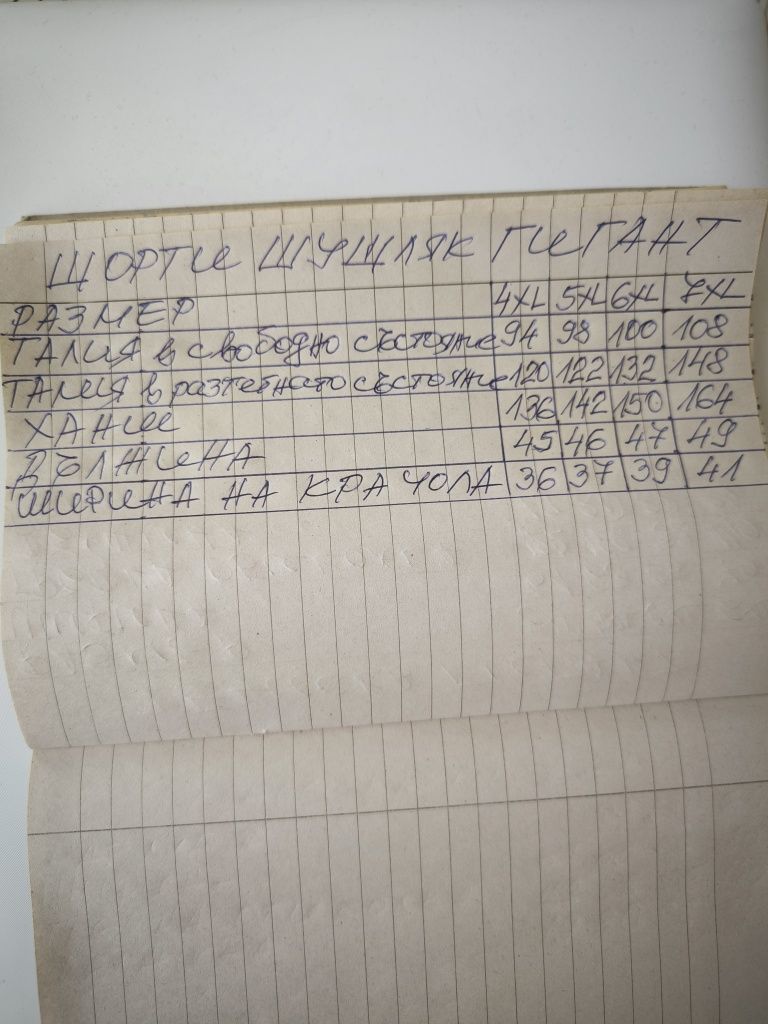 ШОРТИ ШУШЛЯК ГИГАНТ
РАЗМЕР 4XL 5XL 6XL 7XL
ТАЛИЯ в свободно състояние 94 98 100 108
ТАЛИЯ в разтегнато състояние 120 122 132 148
ХАНШ 136 142 150 164
ДЪЛЖИНА 45 46 47 49
ШИРИНА НА КРАЧОЛА 36 37 39 41